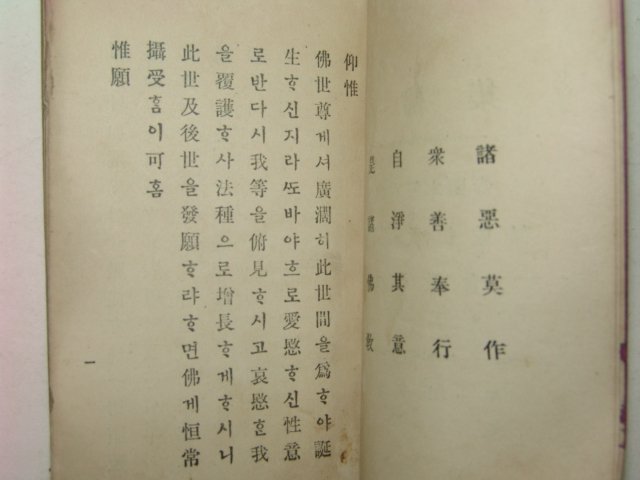 諸惡莫作
衆善奉行
自淨其意
是諸佛敎
仰惟
佛世尊게셔廣濶히此世間을爲ᄒᆞ야誕
生ᄒᆞ신지라ᄯᅩ바야흐로愛愍ᄒᆞ신性意
로반다시我等을俯見ᄒᆞ시고哀愍ᄒᆞᆫ我
을覆護ᄒᆞ사法種으로增長ᄒᆞ게ᄒᆞ시니
此世及後世을發願ᄒᆞ랴ᄒᆞ면佛게恒常
攝受홈이可홈
惟願
一